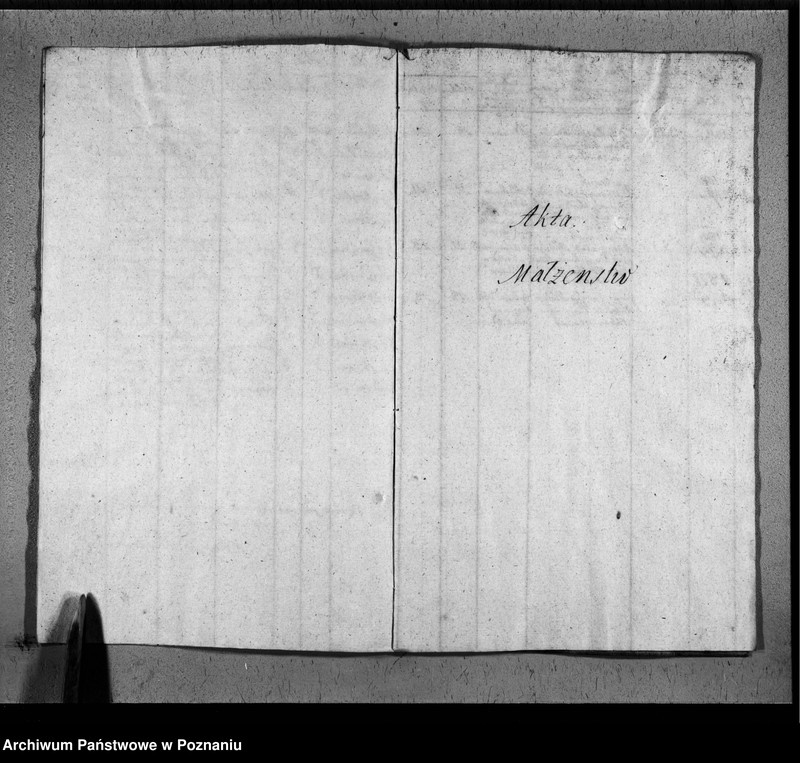 Akta.
Małżenstw
Archiwum Państwowe w Poznaniu